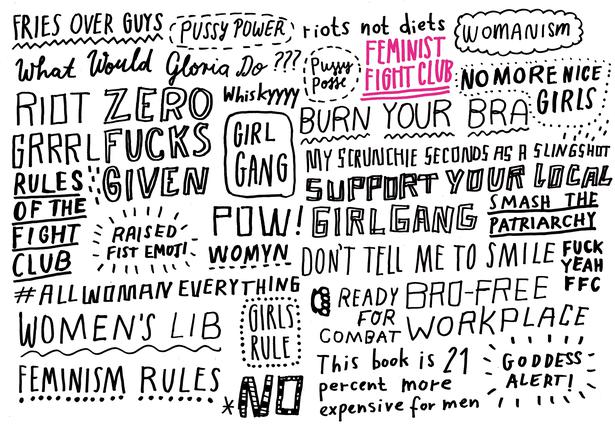 FRIES OVER GUYS
PUSSY POWER
riots not diets
WOMANISM
What Would Gloria Do ???
Pussy
Posse
FEMINIST
FIGHT CLUB
NO MORE NICE
GIRLS
RIOT
GRRRL
ZERO
FUCKS
GIVEN
Whiskyyyy
GIRL
GANG
BURN YOUR BRA
MY SCRUNCHIE SECONDS AS A SLINGSHOT
RULES
OF THE
FIGHT
CLUB
SUPPORT YOUR LOCAL
GIRLGANG
SMASH THE
PATRIARCHY
RAISED
FIST EMOJI
POW!
WOMYN
DON'T TELL ME TO SMILE
FUCK
YEAH
FFC
#ALLWOMANEVERYTHING
READY
FOR
COMBAT
BRO-FREE
WORKPLACE
WOMEN'S LIB
GIRLS
RULE
FEMINISM RULES
*NO
This book is 21
percent more
expensive for men
GODDESS
ALERT!